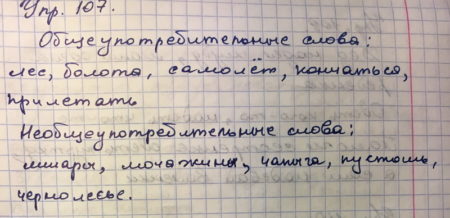 Упр. 107.
Общеупотребительные слова:
лес, болота, самолёт, кончаться,
прилетать
Необщеупотребительные слова:
мшары, мочажины, чапыга, пустошь,
чернолесье.